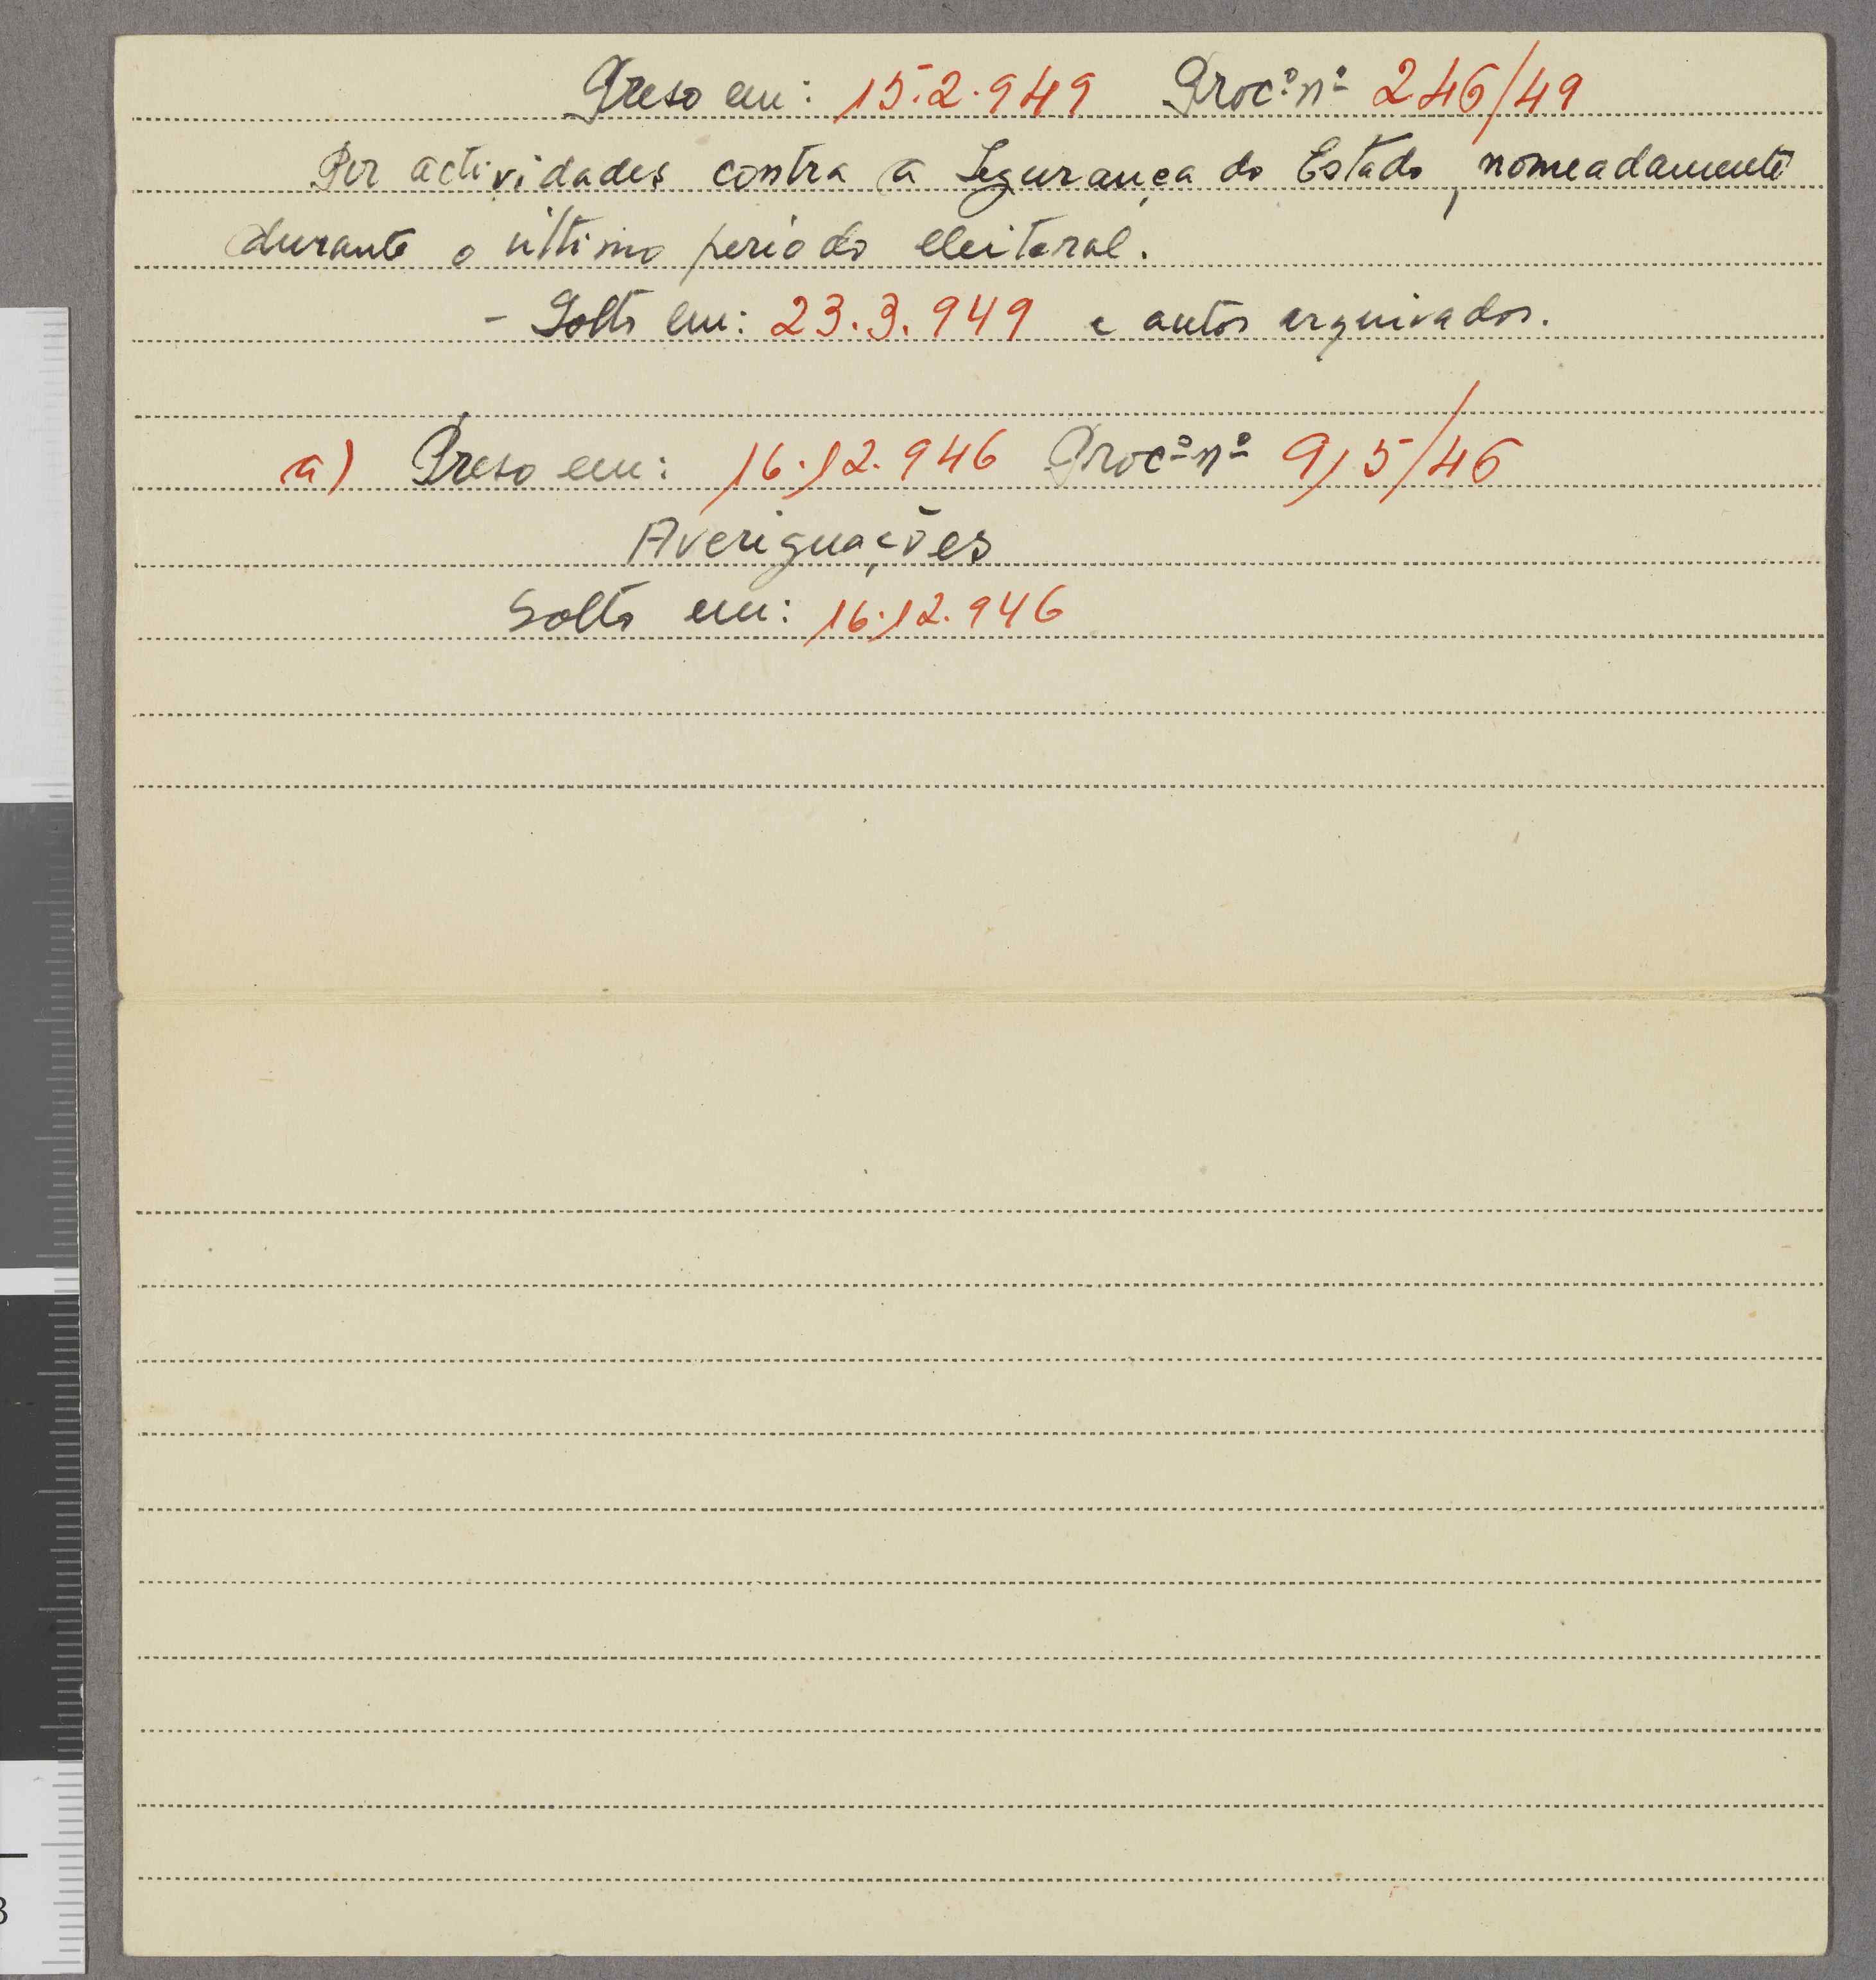 Preso em: 15.2.949 Proc.º nº 246/49
Por actividades contra a Segurança do Estado, nomeadamente
durante o último periodo eleitoral.
- Solto em: 23.3.949 e autos arquivados.
a) Preso em: 16.12.946 Procº nº 915/46
Averiguações
Solto em: 16.12.946